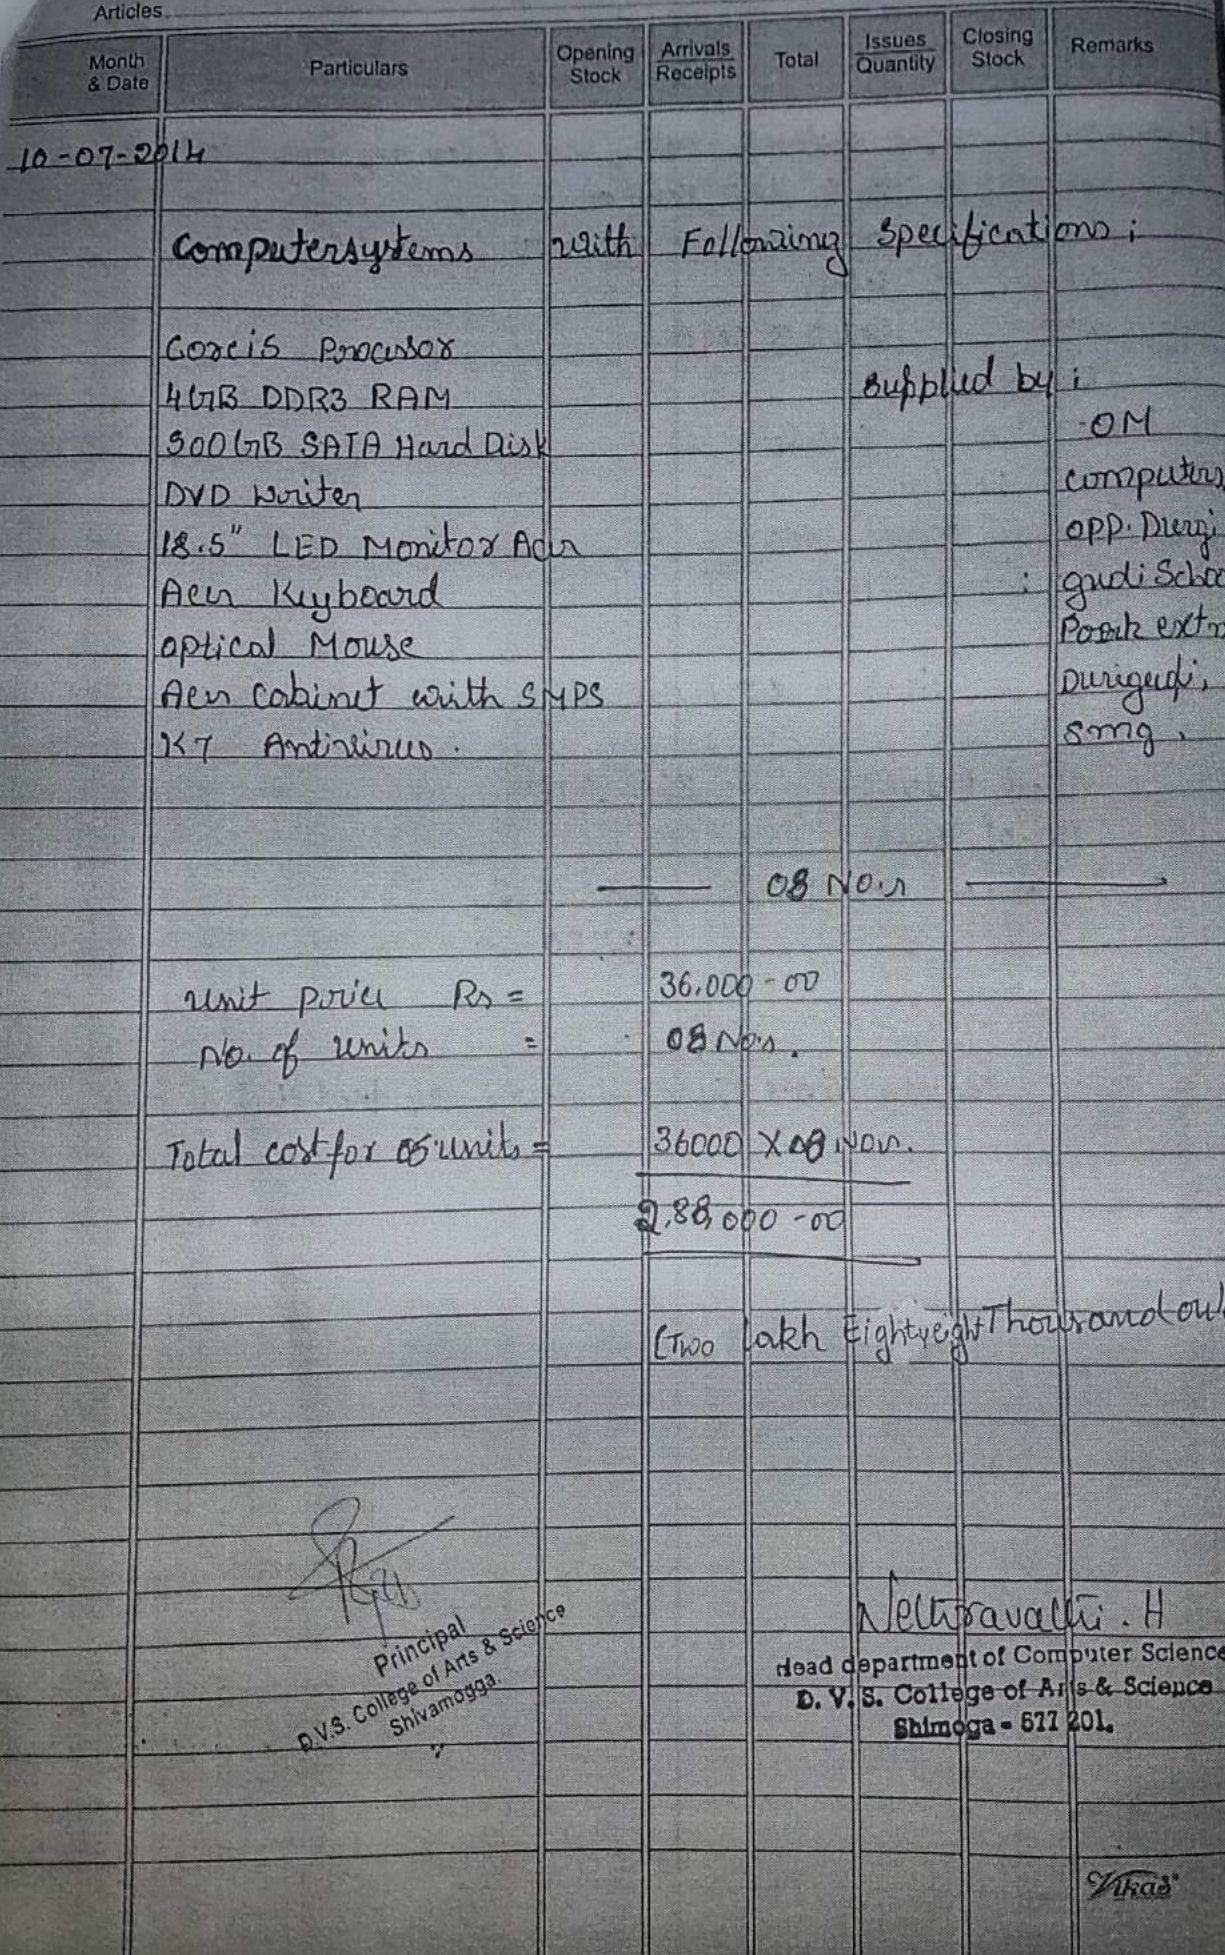 Articles
Month & Date Particulars Opening Stock Arrivals Receipts Total Issues Quantity Closing Stock Remarks
10-07-2014
Computersystems with Following Specifications :
Corei5 Processor
4GB DDR3 RAM
Supplied by :
500GB SATA Hard Disk
OM
DVD writer
computers,
18.5" LED Monitor Acer
opp. Durgi
Acer Keyboard
: gudi School
optical Mouse
Park extn
Acer Cabinet with SMPS
Durigudi,
K7 Antivirus.
smg.
08 NO.s
unit price Rs = 36,000-00
No. of units = 08 No.s.
Total cost for 05 units = 36000 X 08 Nos.
2,88,000-00
(Two lakh Eightyeight Thousand
Principal
D.V.S. College of Arts & Science
Shivamogga.
Nethravathi. H
Head department of Computer Science
D. V. S. College of Arts & Science
Shimoga - 577 201.
Vikas